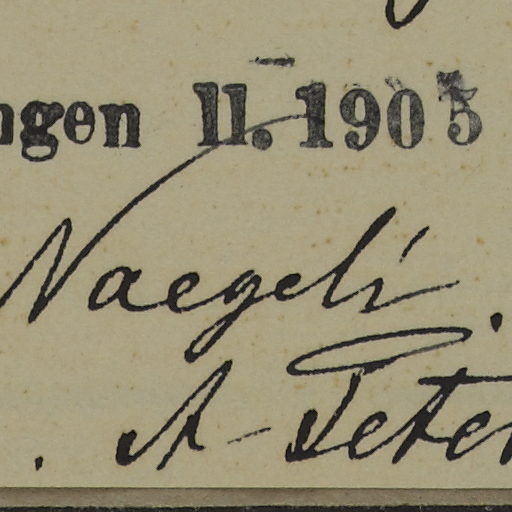 ngen II. 1905
Naegeli.
. A. Peter